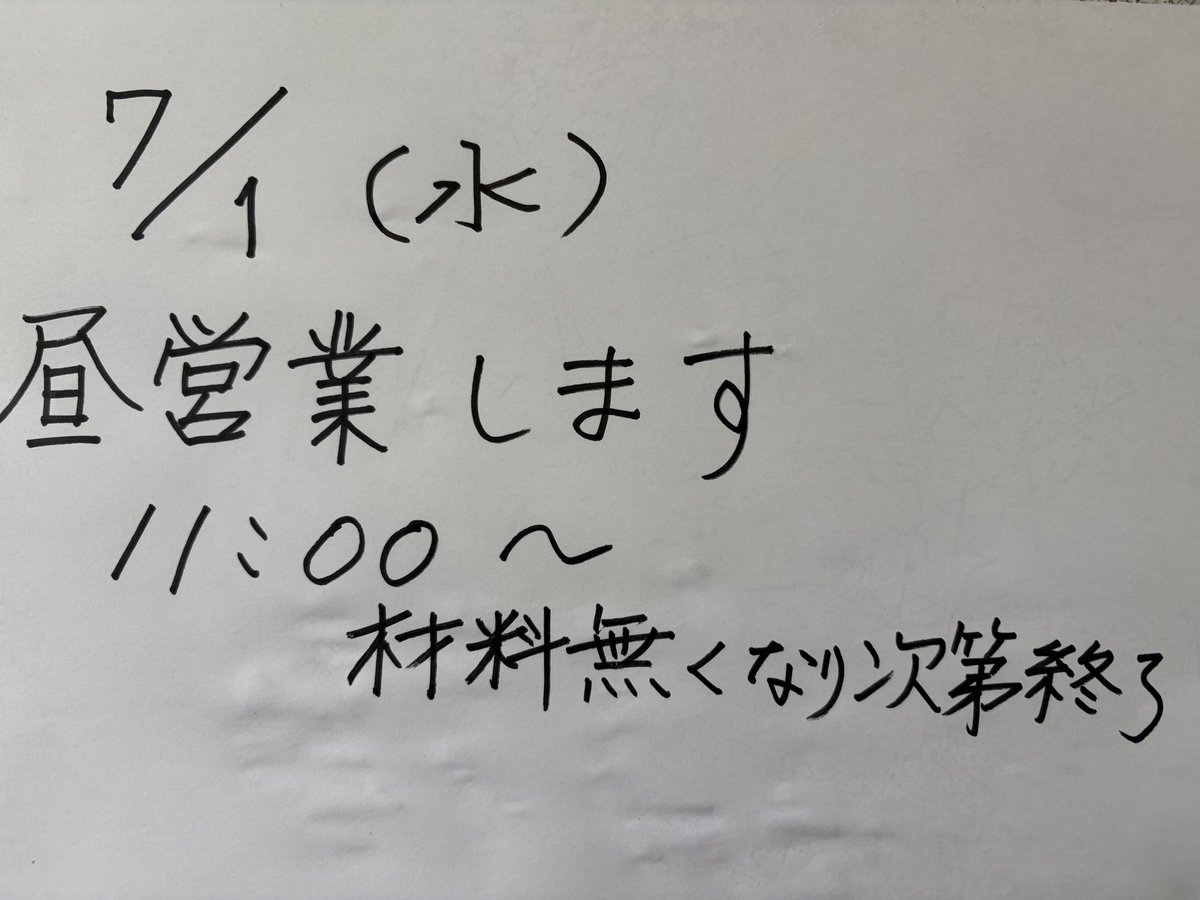 7/1 (水)
昼営業します
11:00 〜
材料無くなり次第終了